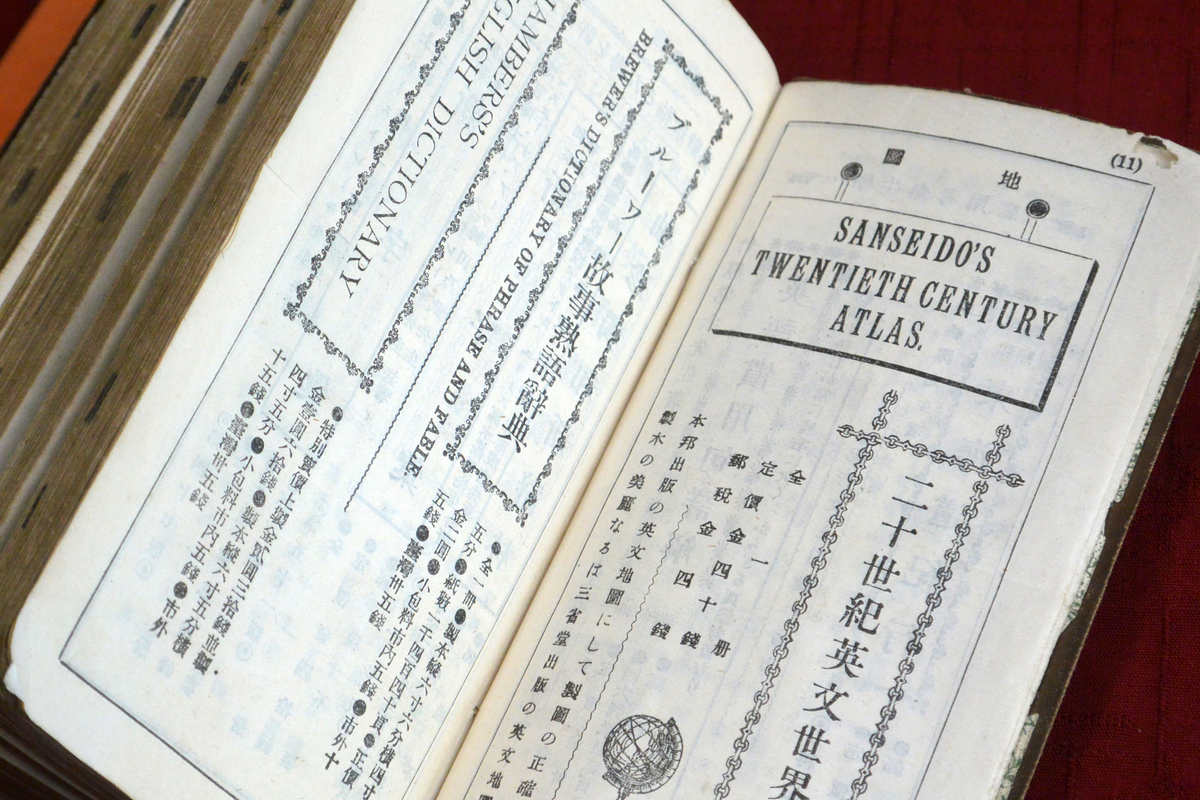 (11)
地圖
SANSEIDO'S
TWENTIETH CENTURY
ATLAS.
二十世紀英文世界
全一册
定價金四十錢
郵税金四錢
本邦出版の英文地圖にして製圖の正確
製本の美麗なるは三省堂出版の英文地圖
ブルーワー故事熟語辭典
BREWER'S DICTIONARY OF PHRASE AND FABLE.
●全一册●製本縱六寸六分橫四寸
五分●紙數一千四百四十頁●正價
金二圓●小包料市内五錢●市外十
五錢●臺灣卅五錢
HAMBERS'S
GLISH DICTIONARY
●特別賣價上製金貳圓三拾錢並製
金壹圓六拾錢●製本縱六寸五分橫
四寸五分●小包料市内五錢●市外
十五錢●臺灣卅五錢